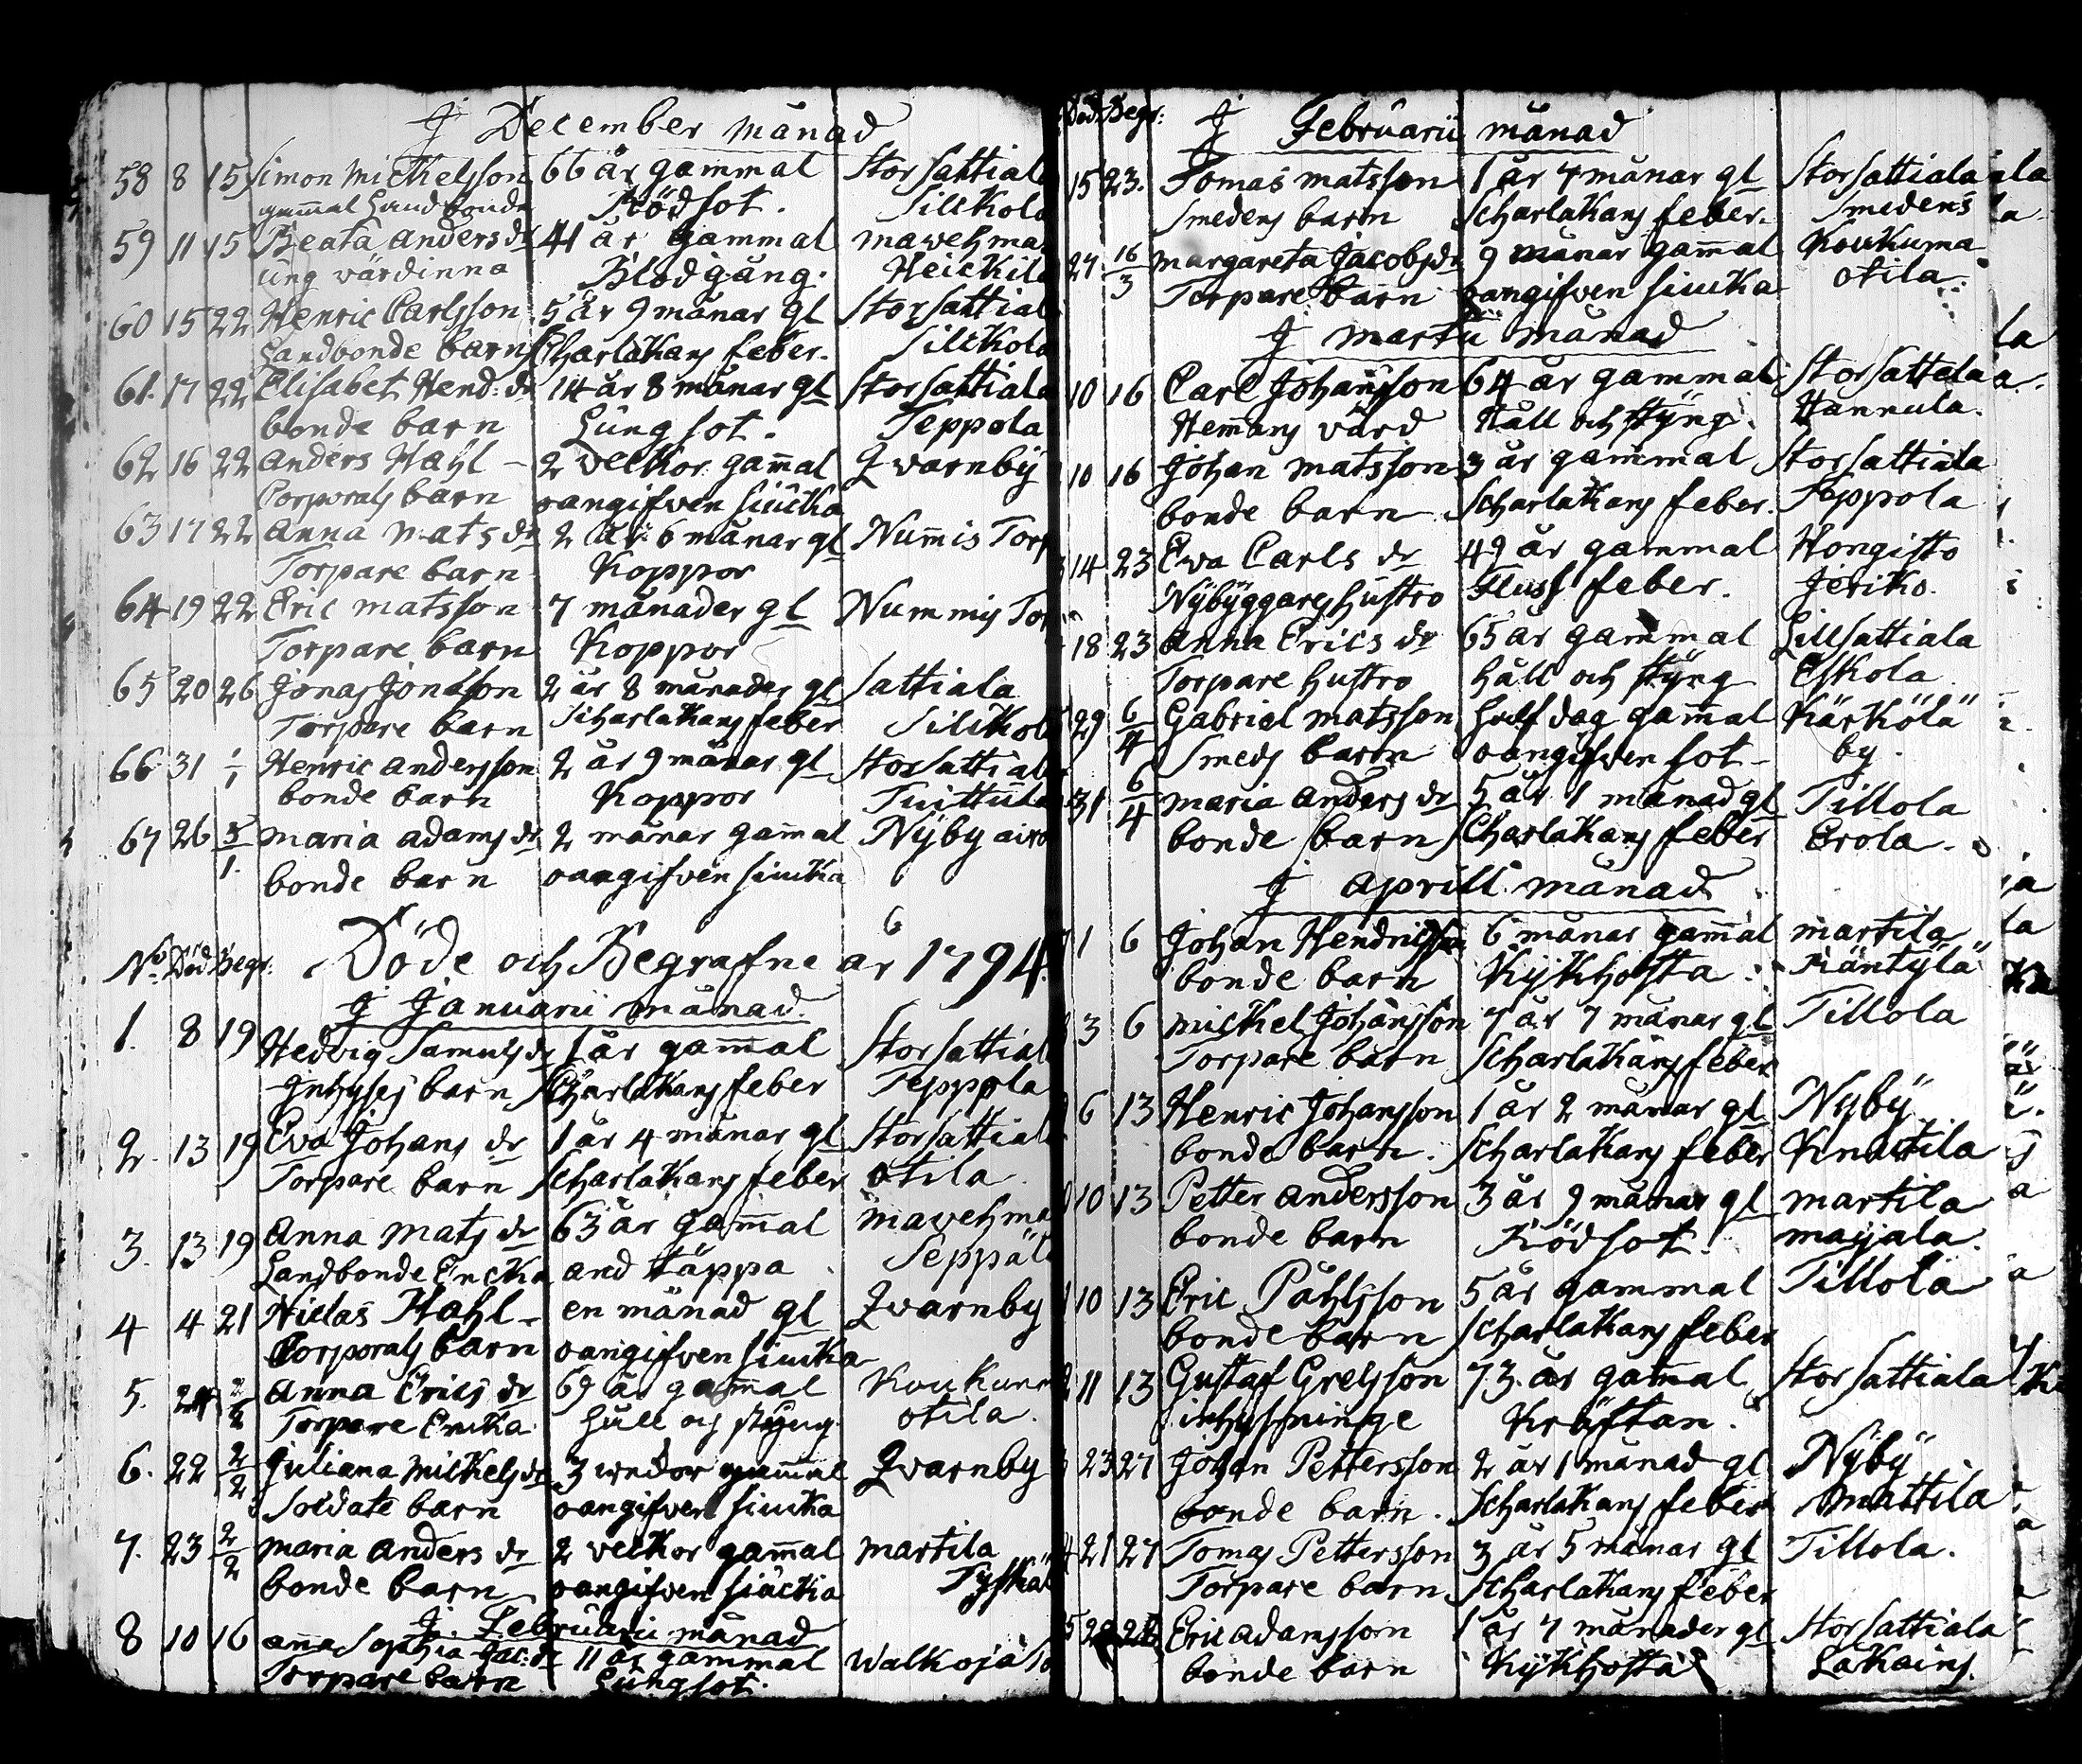 J December månad
58 8 15 Simon Mickelsson 66 år gammal Storsattiala
gam̄al Landbonde Rödsot. Silckola
59 11 15 Beata Anders dr 41 år gammal
ung värdinna Blodgång. Heickila
60 15 22 Henric Carlsson 5 år 9 månar gl Storsattiala
Landbonde barn Scharlakans feber. Silckola
61. 17 22 Elisabet Hend: dr 14 år 8 månar gl Storsattiala
bonde barn Lungsot. Teppola
62 16 22 Anders Hahl 2 veckor gam̄al Qvarnby
Corporals barn oangifven siucka
63 17 22 Anna Mats dr 2 år 6 månar gl Num̄is Torp
Torpare barn Koppor
64 19 22 Eric Matsson 7 månader gl Nummis Tor
Torpare barn Koppor
65 20 26 Jonas Jonasson 2 år 8 månader gl Sattiala
Torpare barn Scharlakans feber Silckol
66 31 1/1 Henric Andersson 2 år 9 månar gl Storsattiala
bonde barn Koppor Tuittula
67 26 5/1. Maria Adams dr 2 månar gam̄al Nyby
bonde barn oangifven siucka
No Död Begr: Döde och Begrafne år 1794.
J Januarii månad.
1. 8 19 Hedvig Samuels dr 1 år gam̄al Storsattial
Inhyses barn Scharlakans feber Teppola
2. 13 19 Eva Johans dr 1 år 4 månar gl Storsattial
Torpare barn Scharlakans feber Otila
3. 13 19 Anna Mats dr 63 år gam̄al
Landbonde Encka and täppa Seppäl
4 4 21 Niclas Hahl en månad gl Qvarnby
Corporals barn oangifven siucka
5. 24 2/2 Anna Erics dr 69 år gam̄al Koukum
Torpare Encka håll och styng. Otila.
6. 22 2/2 Juliana Mickels dr 3 veckor gammal Qvarnby
Soldate barn oangifven siucka
7. 23 2/2 Maria Anders dr 2 veckor gam̄al Martila
bonde barn oangifven siucka
J Februarii månad
8 10 16 Anna Sophia Jac: dr 11 år gammal Walkoja
Torpare barn Lungsot.
Död Begr: J Februarii månad
15 23. Tomas Matsson 1 år 7 månar gl Storsattiala
Smedens barn Scharlakans feber. Smedens
27 16/3 Margareta Jacobs dr 9 månar gam̄al Koukuma
Torpare barn oangifven siucka Otila.
J Martii månad
10 16 Carl Johansson 64 år gammal Storsattiala
Hem̄ans värd Håll och styng. Hannula.
10 16 Johan Matsson 3 år gammal Storsattiala
bonde barn Scharlakans feber. Teppola
14 23 Ewa Carls dr 49 år gammal Hongisto
Nybyggares hustro Fluss feber. Jeriko.
18 23 Anna Erics dr 65 år gammal Lillsattiala
Torpare hustro håll och styng Eskola
29 6/4 Gabriel Matsson half dag gam̄al Kärkölä
Smeds barn oangifven sot by.
31 6/4 Maria Anders dr 5 år 1 månad gl Tillola
bonde barn Scharlakans feber Erola.
J Aprill månad
1 6 Johan Hendricsson 6 månar gam̄al Martila
bonde barn Kykhosta Räntylä
3 6 Mickel Johansson 7 år 7 månar gl Tillola
Torpare barn Scharlakans feber
6 13 Henric Johansson 1 år 2 månar gl Nyby
bonde barn. Scharlakans feber Knuutila
10 13 Petter Andersson 3 år 9 månar gl Martila
bonde barn Rödsot. Maijala.
10 13 Eric Påhlsson 5 år gammal Tillola
bonde barn Scharlakans feber
11 13 Gustaf Grelsson 73 år gam̄al Storsattiala
inhysninge Kräftan.
23 27 Johan Pettersson 2 år 1 månad gl Nyby
bonde barn. Scharlakans feber Mattila
21 27 Tomas Pettersson 3 år 5 månar gl Tillola.
Torpare barn Scharlakans feber
Eric Adamsson 1 år 7 månader gl Storsattiala
bonde barn Kykhosta Lakains.